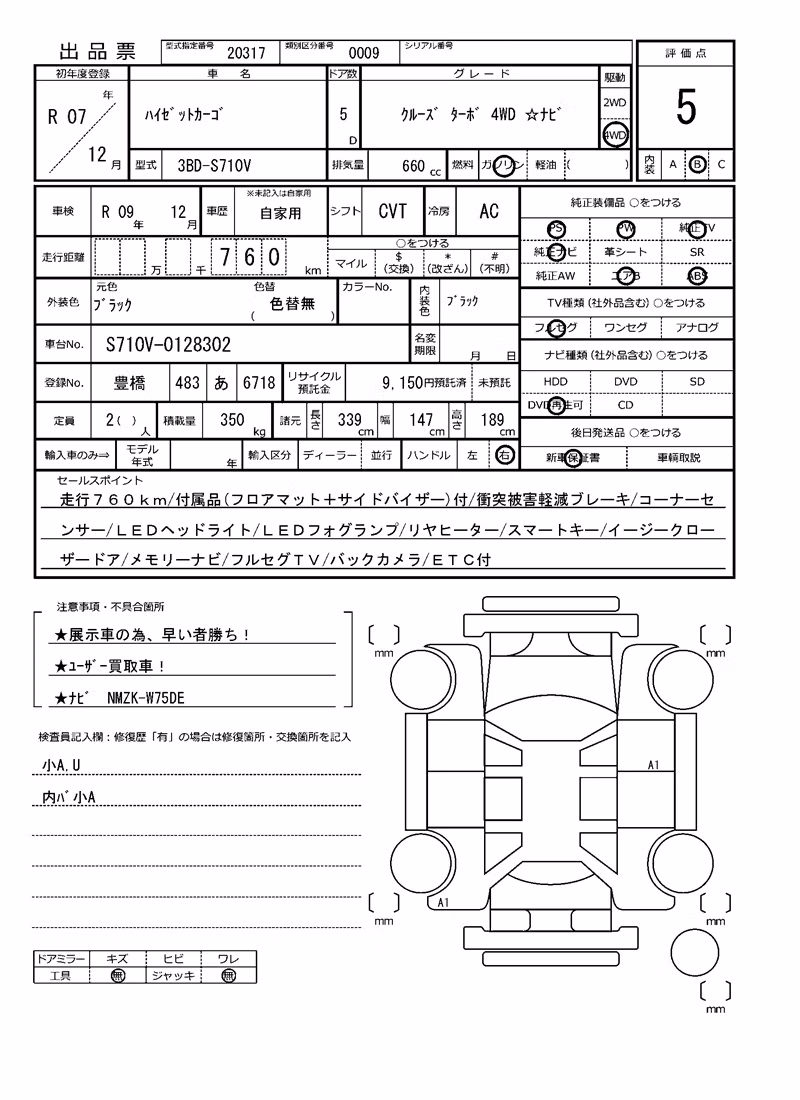 出品票 型式指定番号 20317 類別区分番号 0009 シリアル番号
評価点
5
内装 A B C
初年度登録 車名 ドア数 グレード 駆動
R 07 年 12 月 ﾊｲｾﾞｯﾄｶｰｺﾞ 5 D ｸﾙｰｽﾞ ﾀｰﾎﾞ 4WD ☆ﾅﾋﾞ 2WD 4WD
型式 3BD-S710V 排気量 660 cc 燃料 ガソリン 軽油 ( )
車検 R 09 年 12 月 車歴 ※未記入は自家用 自家用 シフト CVT 冷房 AC
走行距離 万 千 760 km ○をつける
マイル $(交換) *(改ざん) #(不明)
外装色 元色 ﾌﾞﾗｯｸ 色替 ( 色替無 ) カラーNo. 内装色 ﾌﾞﾗｯｸ
車台No. S710V-0128302 名変期限 月 日
登録No. 豊橋 483 あ 6718 リサイクル預託金 9,150円預託済 未預託
定員 2( )人 積載量 350 kg 諸元 長さ 339 cm 幅 147 cm 高さ 189 cm
輸入車のみ⇒ モデル年式 年 輸入区分 ディーラー 並行 ハンドル 左 右
純正装備品 ○をつける
PS PW 純正TV
純正ナビ 革シート SR
純正AW エアB ABS
TV種類(社外品含む)○をつける
フルセグ ワンセグ アナログ
ナビ種類(社外品含む)○をつける
HDD DVD SD
DVD再生可 CD
後日発送品 ○をつける
新車保証書 車輌取説
セールスポイント
走行７６０ｋｍ/付属品(フロアマット＋サイドバイザー)付/衝突被害軽減ブレーキ/コーナーセ
ンサー/ＬＥＤヘッドライト/ＬＥＤフォグランプ/リヤヒーター/スマートキー/イージークロー
ザードア/メモリーナビ/フルセグＴＶ/バックカメラ/ＥＴＣ付
注意事項・不具合箇所
★展示車の為、早い者勝ち！
★ﾕｰｻﾞｰ買取車！
★ﾅﾋﾞ NMZK-W75DE
検査員記入欄：修復歴「有」の場合は修復箇所・交換箇所を記入
小A,U
内ﾊﾞ小A
ドアミラー キズ ヒビ ワレ
工具 無 ジャッキ 無
mm mm
A1
A1
mm mm
mm